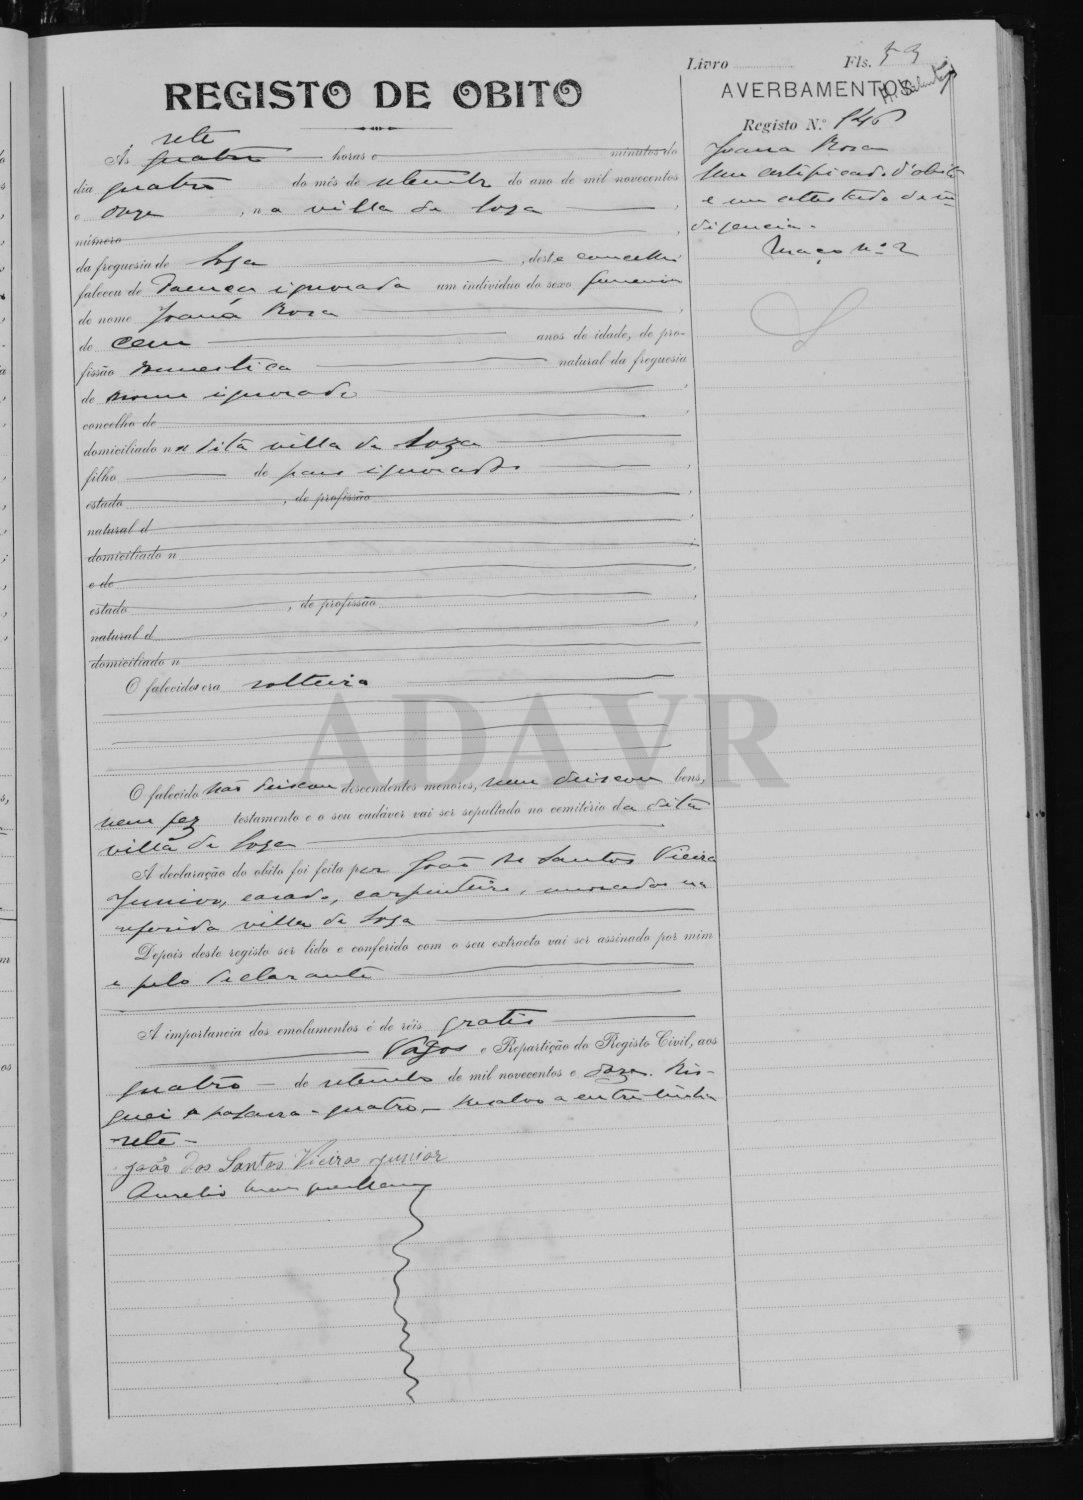 Livro Fls. 59
REGISTO DE OBITO
AVERBAMENTOS
Registo N.º 146
sete
Ás quatro horas e minutos do
dia quatro do mês de setembro do ano de mil novecentos
e onze, na villa de Soza,
número
da freguesia de Soza, deste concelho
faleceu de doença ignorada um individuo do sexo femenino
de nome Joana Rosa,
de cem anos de idade, de pro-
fissão domestica natural da freguesia
de nome ignorado,
concelho de,
domiciliado na dita villa de Soza
filho de paes ignorados,
estado, de profissão,
natural d,
domiciliado n;
e de,
estado, de profissão,
natural d,
domiciliado n
O falecido era solteira
O falecido não deixou descendentes menores, nem deixou bens,
nem fez testamento e o seu cadáver vai ser sepultado no cemitério da dita
villa de Soza
A declaração do obito foi feita por João dos Santos Vieira
Junior, casado, carpinteiro, morador na
referida villa de Soza
Depois deste registo ser lido e conferido com o seu extracto vai ser assinado por mim
e pelo declarante
A importancia dos emolumentos é de réis gratis
Vagos e Repartição do Registo Civil, aos
quatro de setembro de mil novecentos e onze. Ris-
quei a palavra - quatro - Resalvo a entrelinha
sete -
João dos Santos Vieira Junior
Aurelio
Joana Rosa
Um certificado d'obito
e um attestado de in-
digencia.
Maço n.º 2
ADAVR